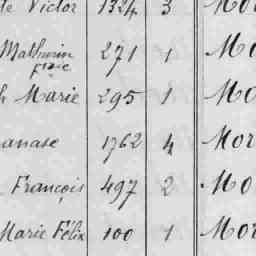 de Victor 1324 3 Mor
Mathurin 271 1 Mo
frère
Marie 295 1 Mo
anase 1762 4 Mor
François 497 2 Mo
Marie Félix 100 1 Mor